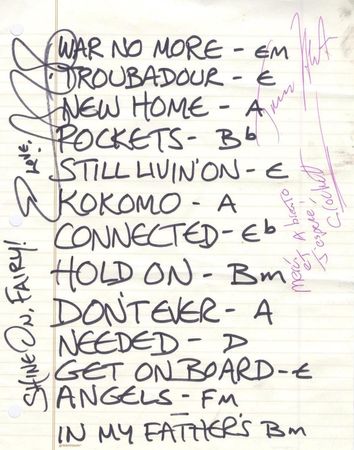 WAR NO MORE - Em
TROUBADOUR - E
NEW HOME - A
ROCKETS - Bb
STILL LIVIN' ON - E
KOKOMO - A
CONNECTED - Eb
HOLD ON - Bm
DON'T EVER - A
NEEDED - D
GET ON BOARD - E
ANGELS - Fm
IN MY FATHER'S Bm
SHINE ON, FAIRY!
LOVE,